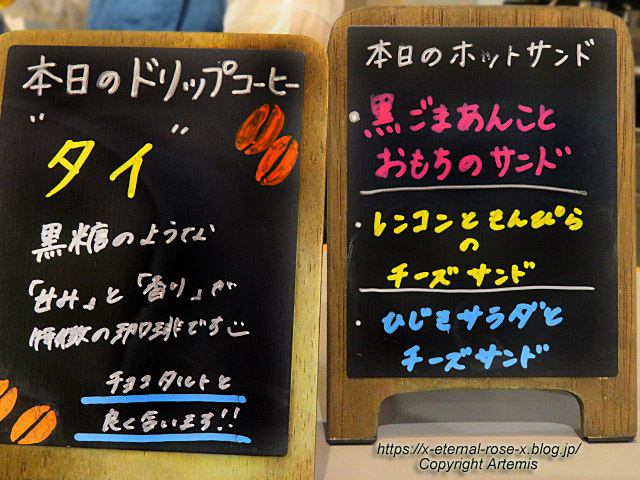 本日のドリップコーヒー
"タイ"
黒糖のような
「甘み」と「香り」が
特徴の珈琲です
チョコタルトと
良く合います!!
本日のホットサンド
・黒ごまあんこと
おもちのサンド
・レンコンときんぴら
の
チーズサンド
・ひじきサラダと
チーズサンド
https://x-eternal-rose-x.blog.jp/
Copyright Artemis